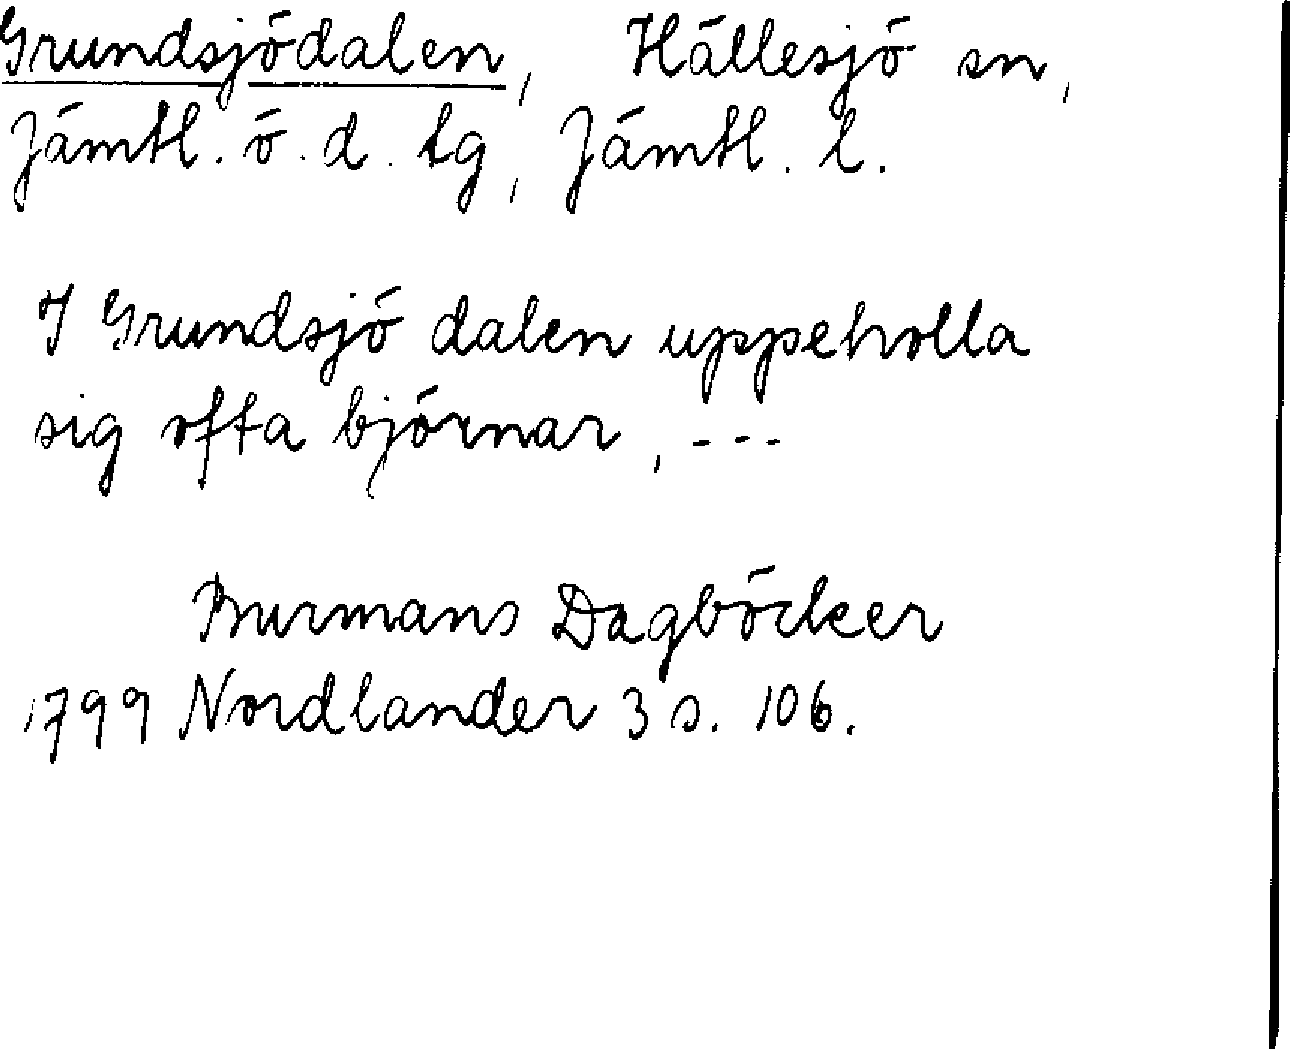 Grundsjödalen, Hällesjö sn,
Jämtl. ö. d. tg, Jämtl. l.
I Grundsjö dalen uppeholla
sig ofta björnar, ---
Burmans Dagböcker
1799 Nordlander 3 s. 106.